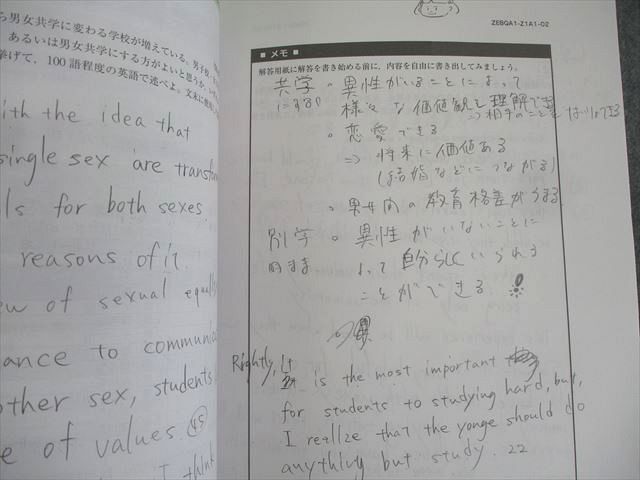 ら男女共学に変わる学校が増えている。男子校
あるいは男女共学にする方がよいと思うか、
挙げて、100語程度の英語で述べよ。文末に
ith the idea that
single sex are transfor
ls for both sexes.
reasons of it.
ew of sexual equali
ance to communi
other sex, students
e of values. 45
I think
ZEBQA1-Z1A1-02
■ メモ ■
解答用紙に解答を書き始める前に、内容を自由に書き出してみましょう。
共学 ・異性がいることによって
にする 様々な価値観を理解でき
⇒相手のことを
・恋愛できる
⇒ 将来に価値ある
(結婚などにつながる)
・男女間の教育格差がうまる
別学 ・異性がいないことに
のまま よって自分らしくいられる
ことができる
Rightly, It is the most important
for students to studying hard, but,
I reallze that the yonge should do
anything but study. 22